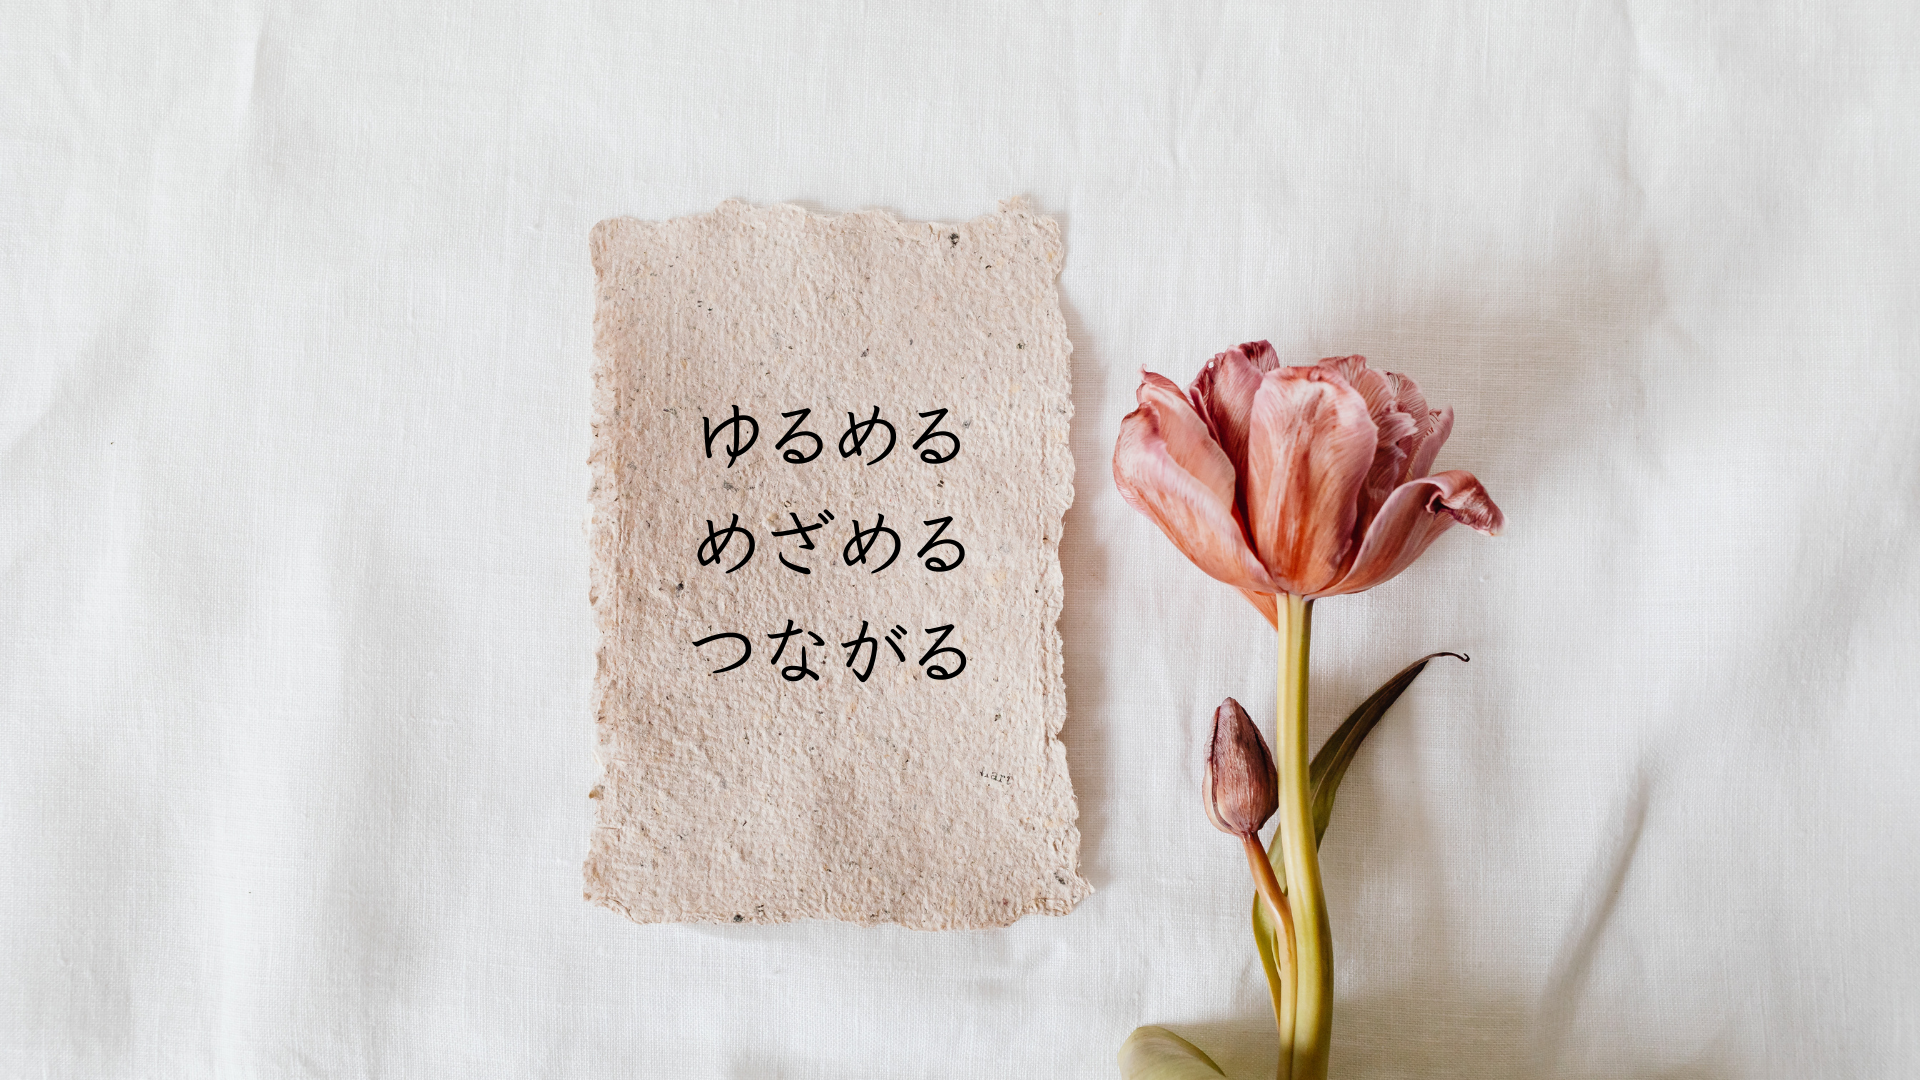 ゆるめる
めざめる
つながる